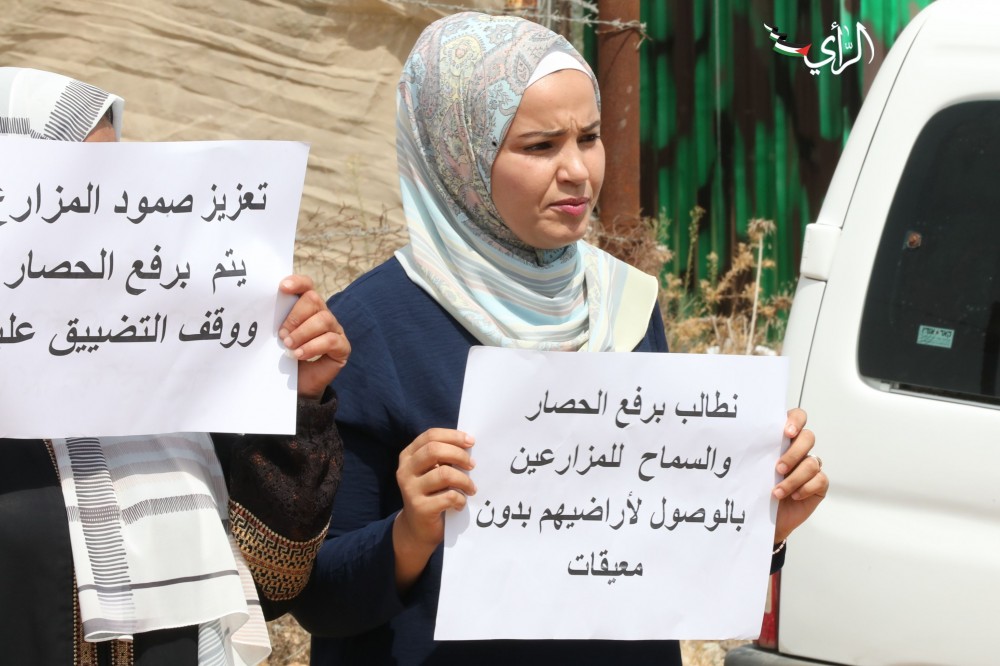 الرأي
تعزيز صمود المزارع
يتم برفع الحصار
ووقف التضييق
نطالب برفع الحصار
والسماح للمزارعين
بالوصول لأراضيهم بدون
معيقات